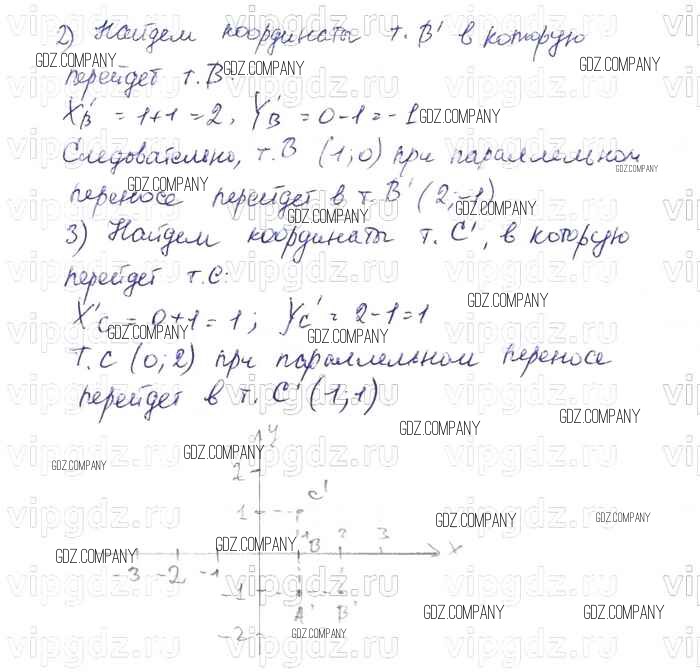 2) Найдем координаты т. B' в которую
перейдет т. B
X'B = 1+1 = 2, Y'B = 0-1 = -1
Следовательно, т. B (1; 0) при параллельном
переносе перейдет в т. B' (2; -1)
3) Найдем координаты т. C', в которую
перейдет т. C:
X'c = 0+1 = 1; Yc' = 2-1 = 1
Т. C (0; 2) при параллельном переносе
перейдет в т. C' (1; 1)
y
2
C'
1
1 B 2 3 x
-3 -2 -1
-1
A' B'
-2
GDZ.COMPANY
vipgdz.ru